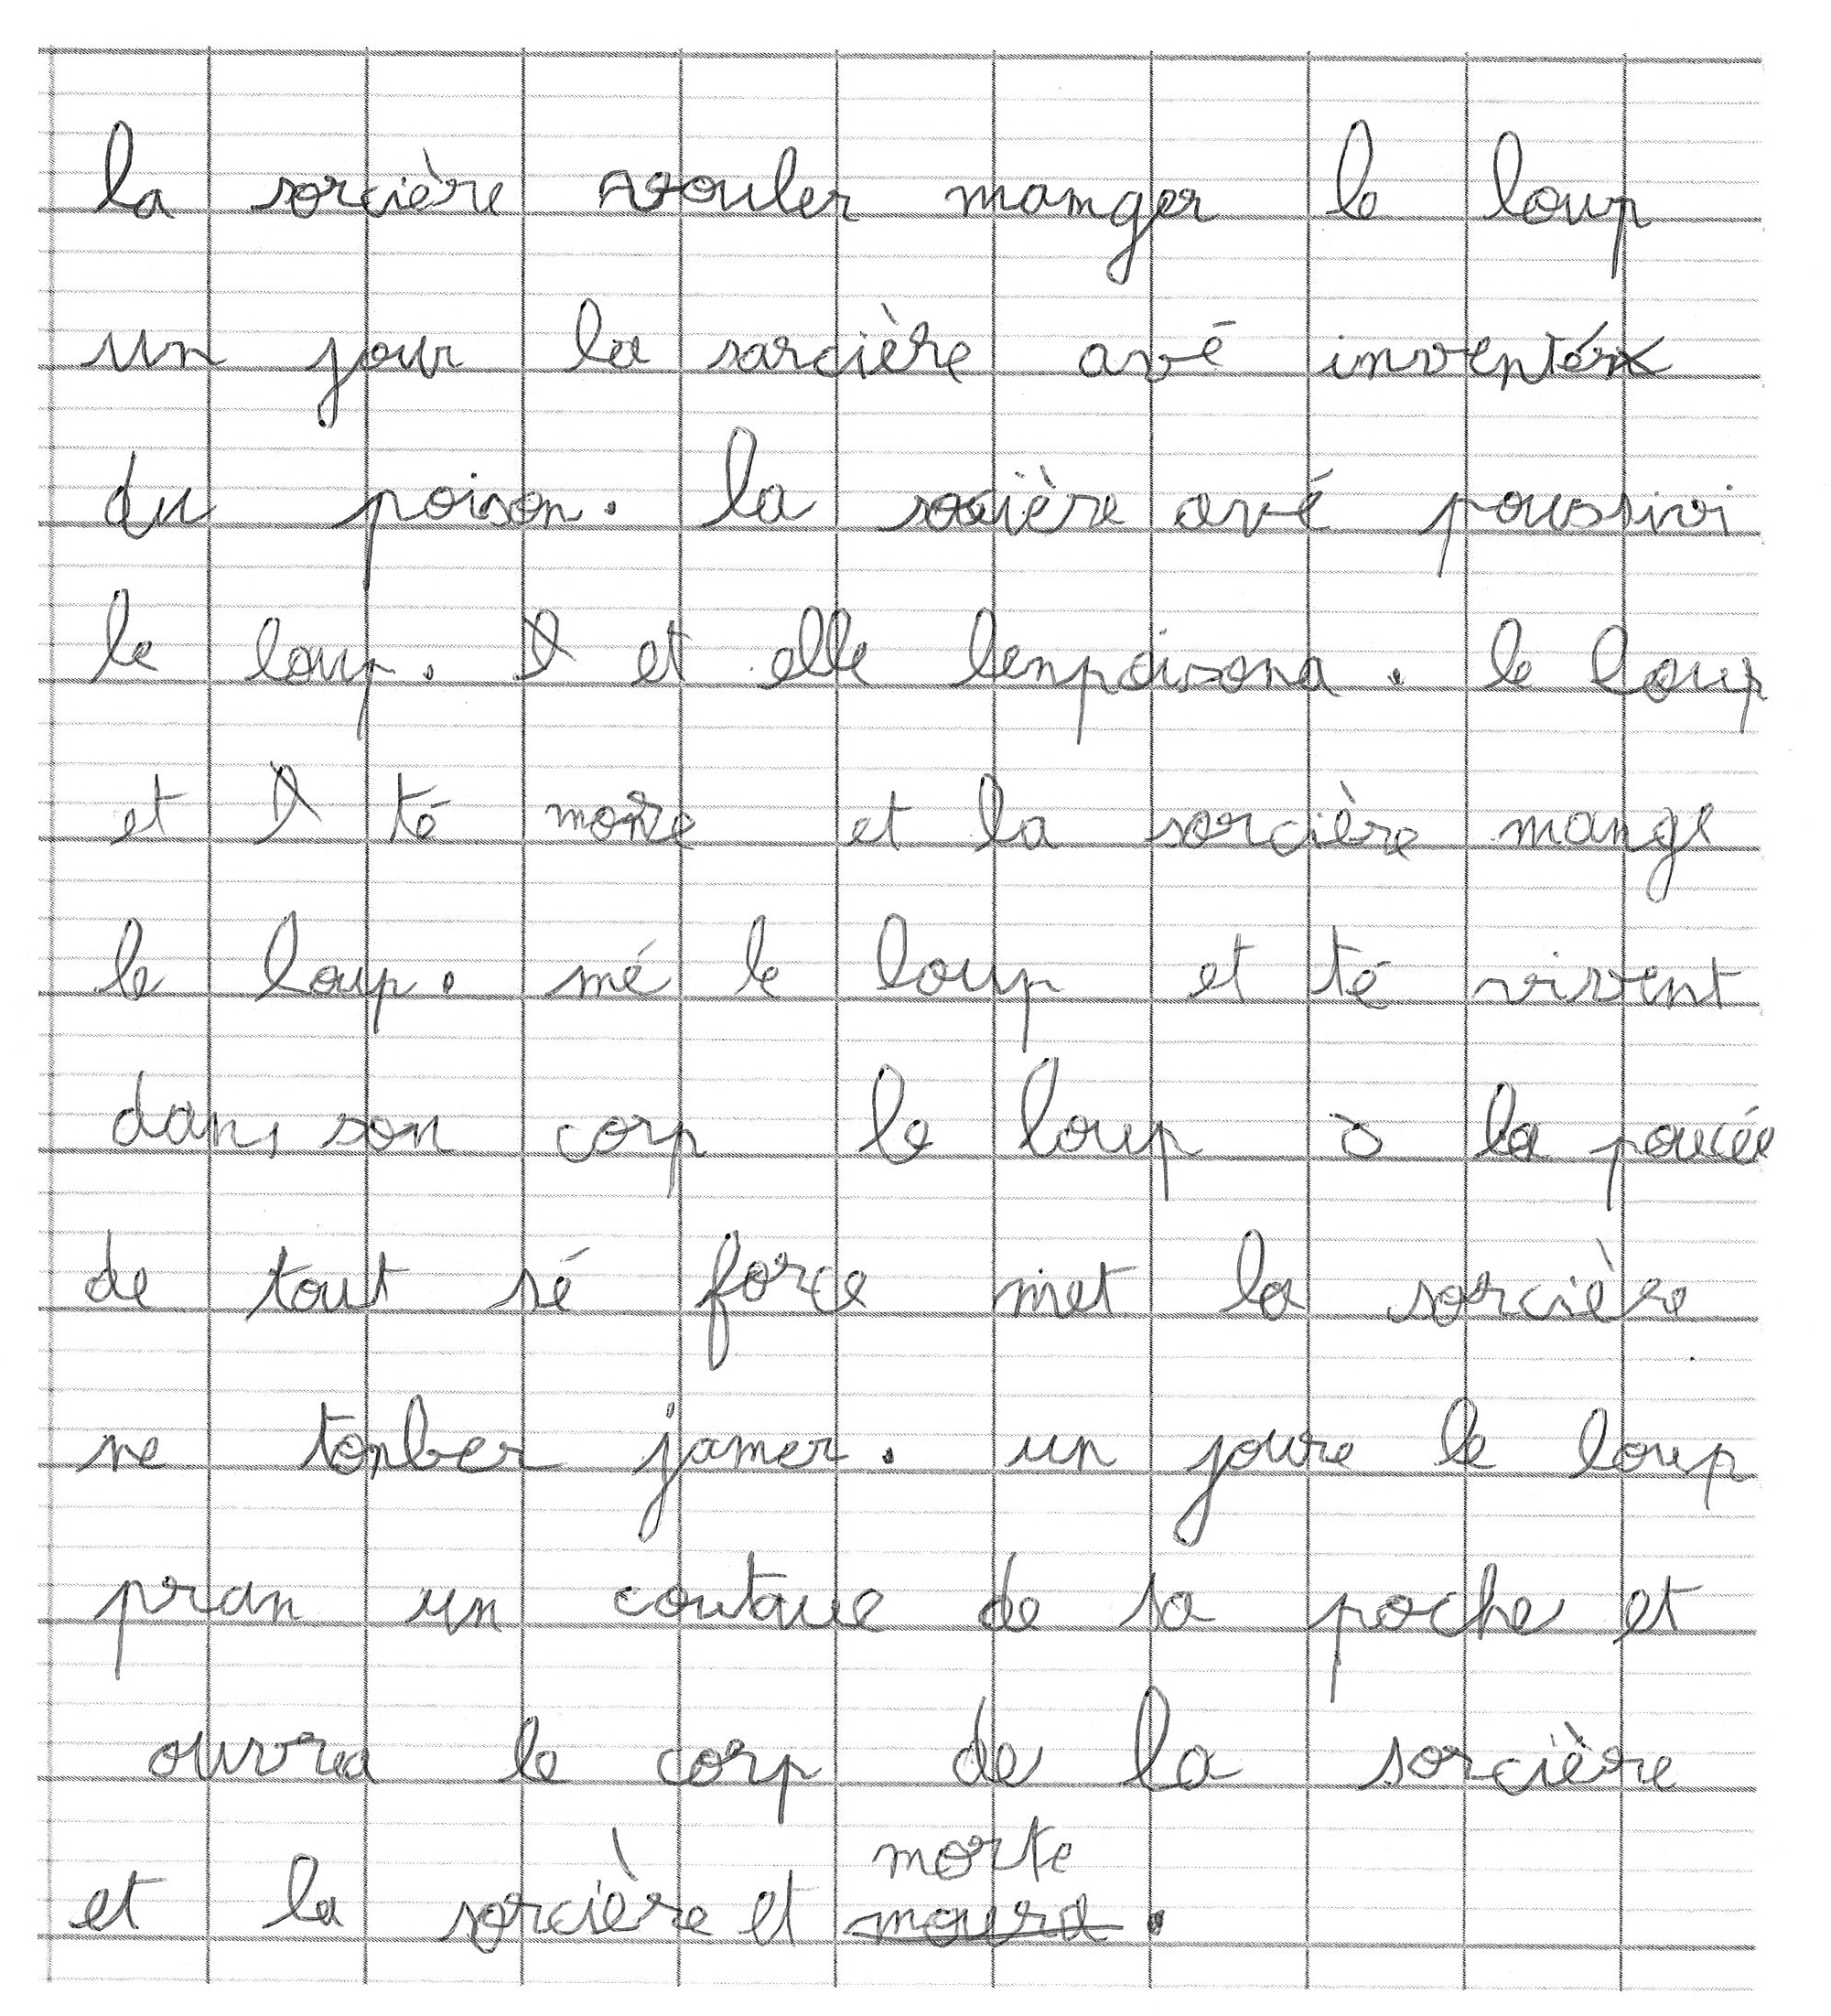 la sorcière vouler manger le loup
un jour la sarcière avé inventé
du poison. la socière avé poussivi
le loup. et elle lenpoisona. le loup
et té more et la sorcière mange
le loup. mé le loup et té vivent
dans son corp le loup a la poucée
de tout sé force met la sorcière
ne tonber jamer. un joure le loup
pran un coutaue de sa poche et
ouvrea le corp de la sorcière
et la sorcière et morte moura.